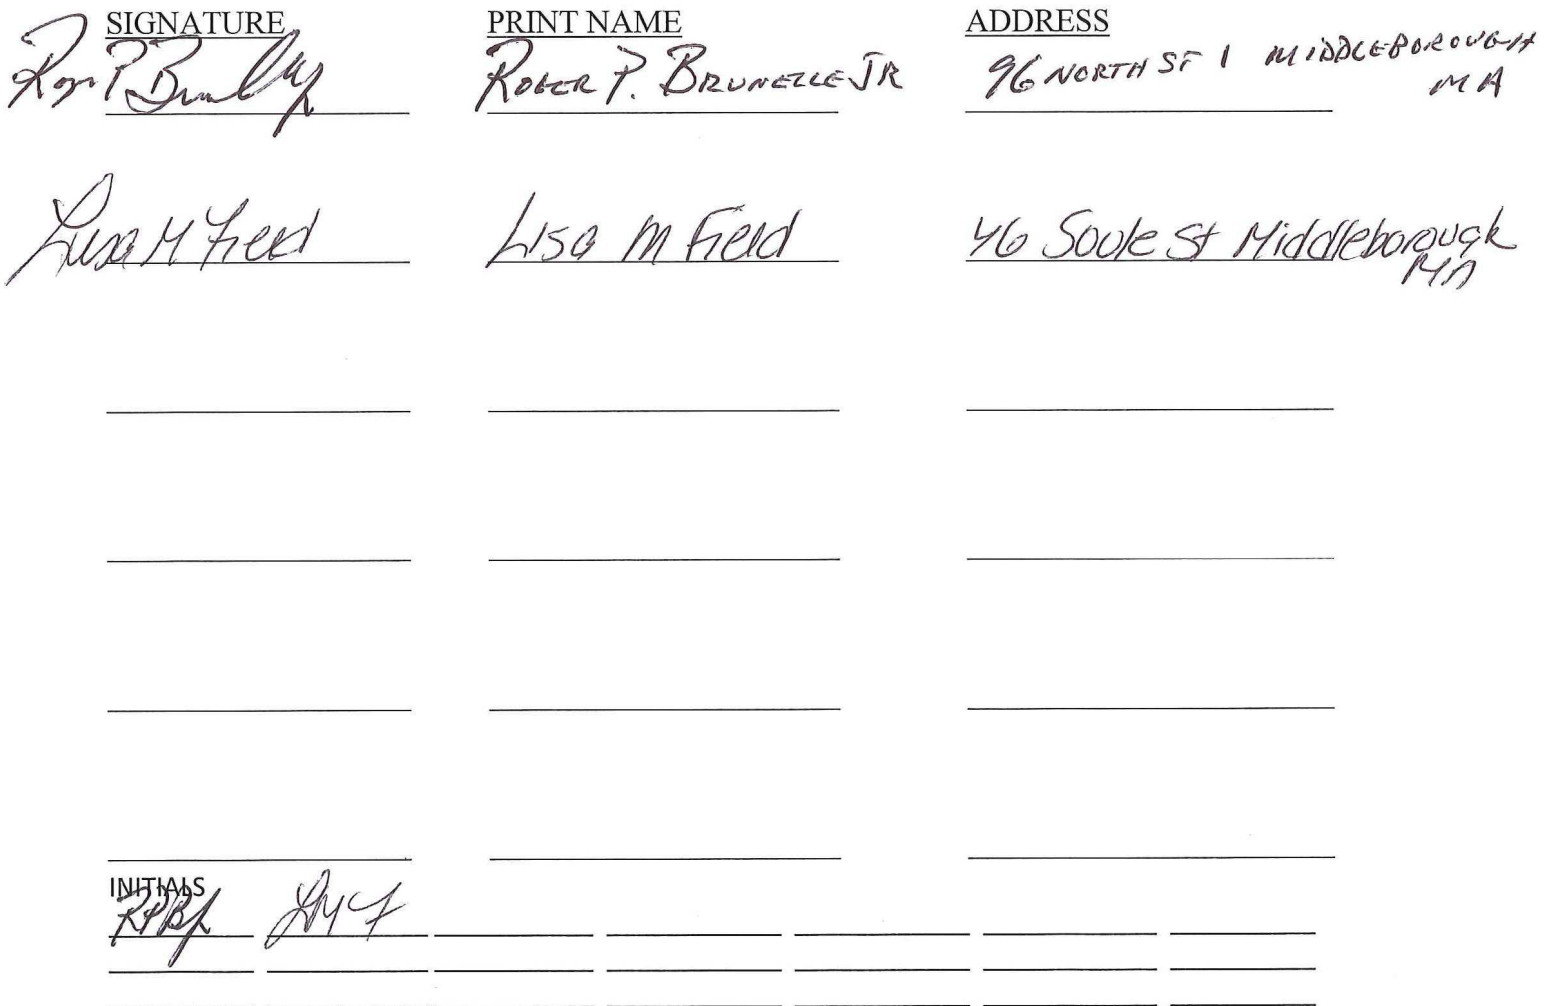 SIGNATURE PRINT NAME ADDRESS
Roger P Brunelle Jr ROGER P. BRUNELLE JR 96 NORTH ST MIDDLEBOROUGH
MA
Lisa M Field Lisa M Field 46 Soule St Middleborough
MA
INITIALS
RPBJr LMF